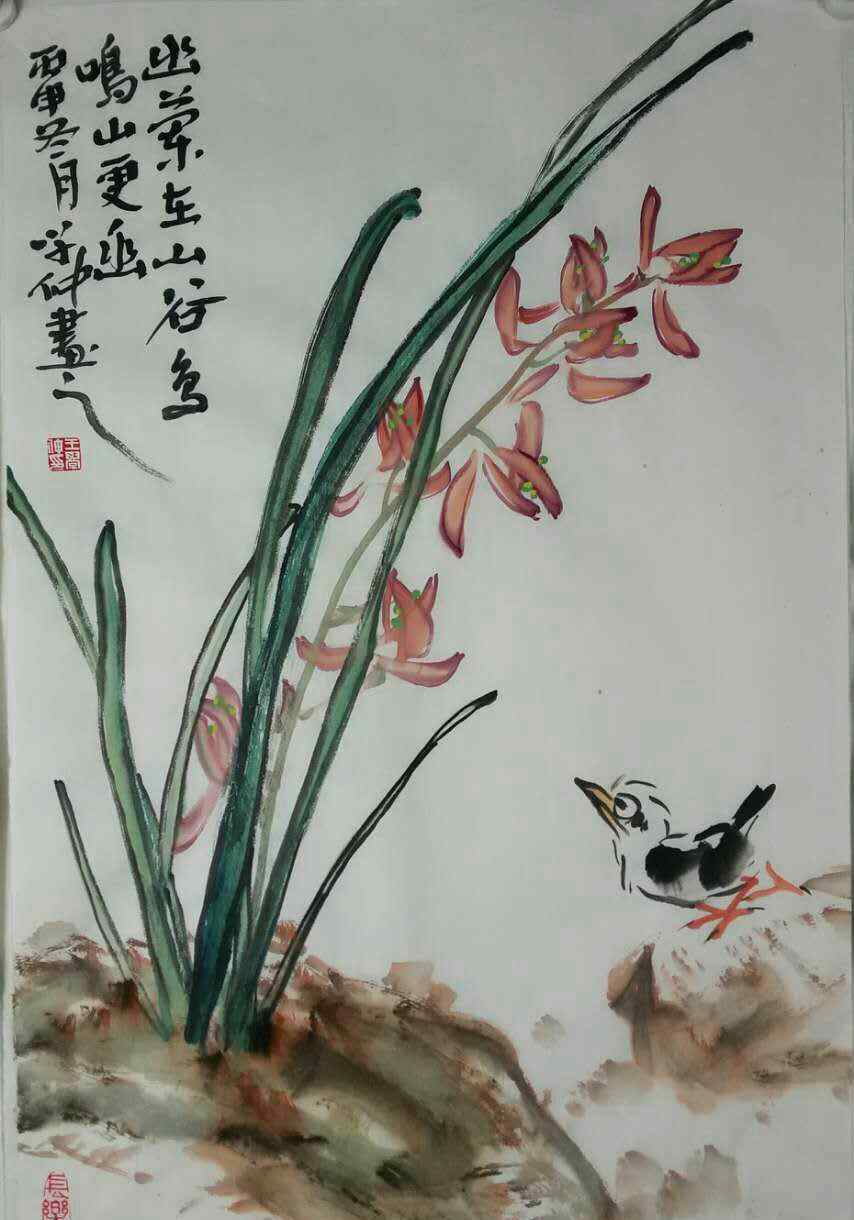 幽蘭在山谷鳥
鳴山更幽
丙申冬月学仲畫之
長樂